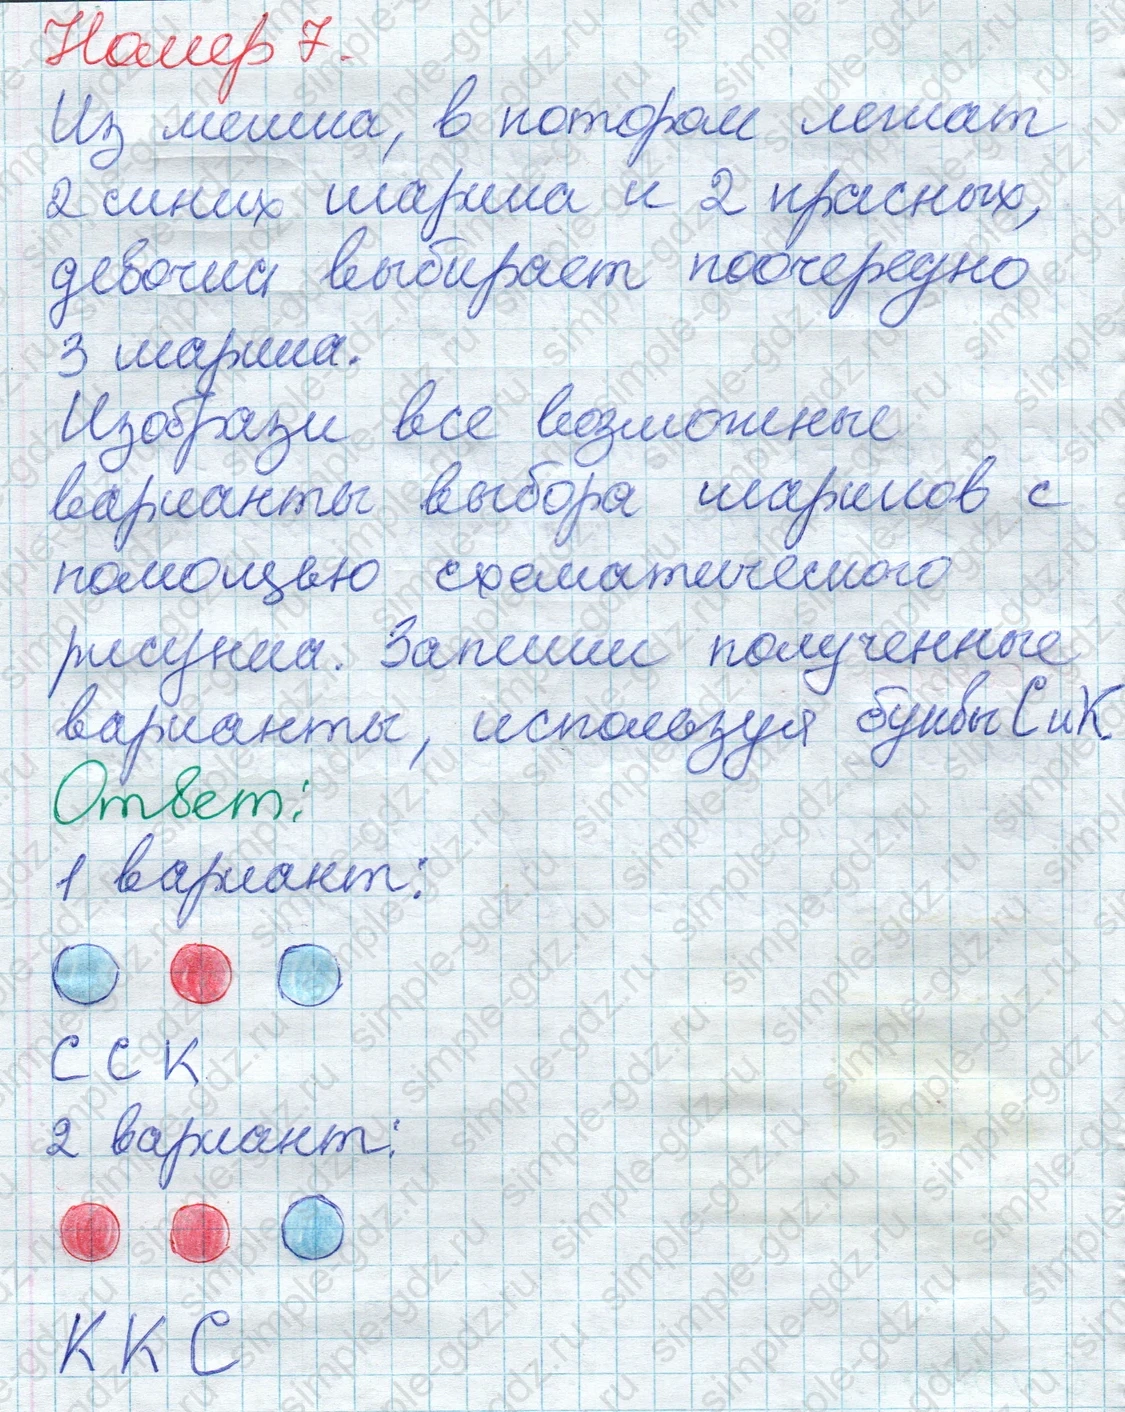 Номер 7.
Из мешка, в котором лежат
2 синих шарика и 2 красных,
девочка выбирает поочередно
3 шарика.
Изобрази все возможные
варианты выбора шариков с
помощью схематического
рисунка. Запиши полученные
варианты, используя буквы С и К.
Ответ:
1 вариант:
С С К
2 вариант:
К К С
simple-gdz.ru